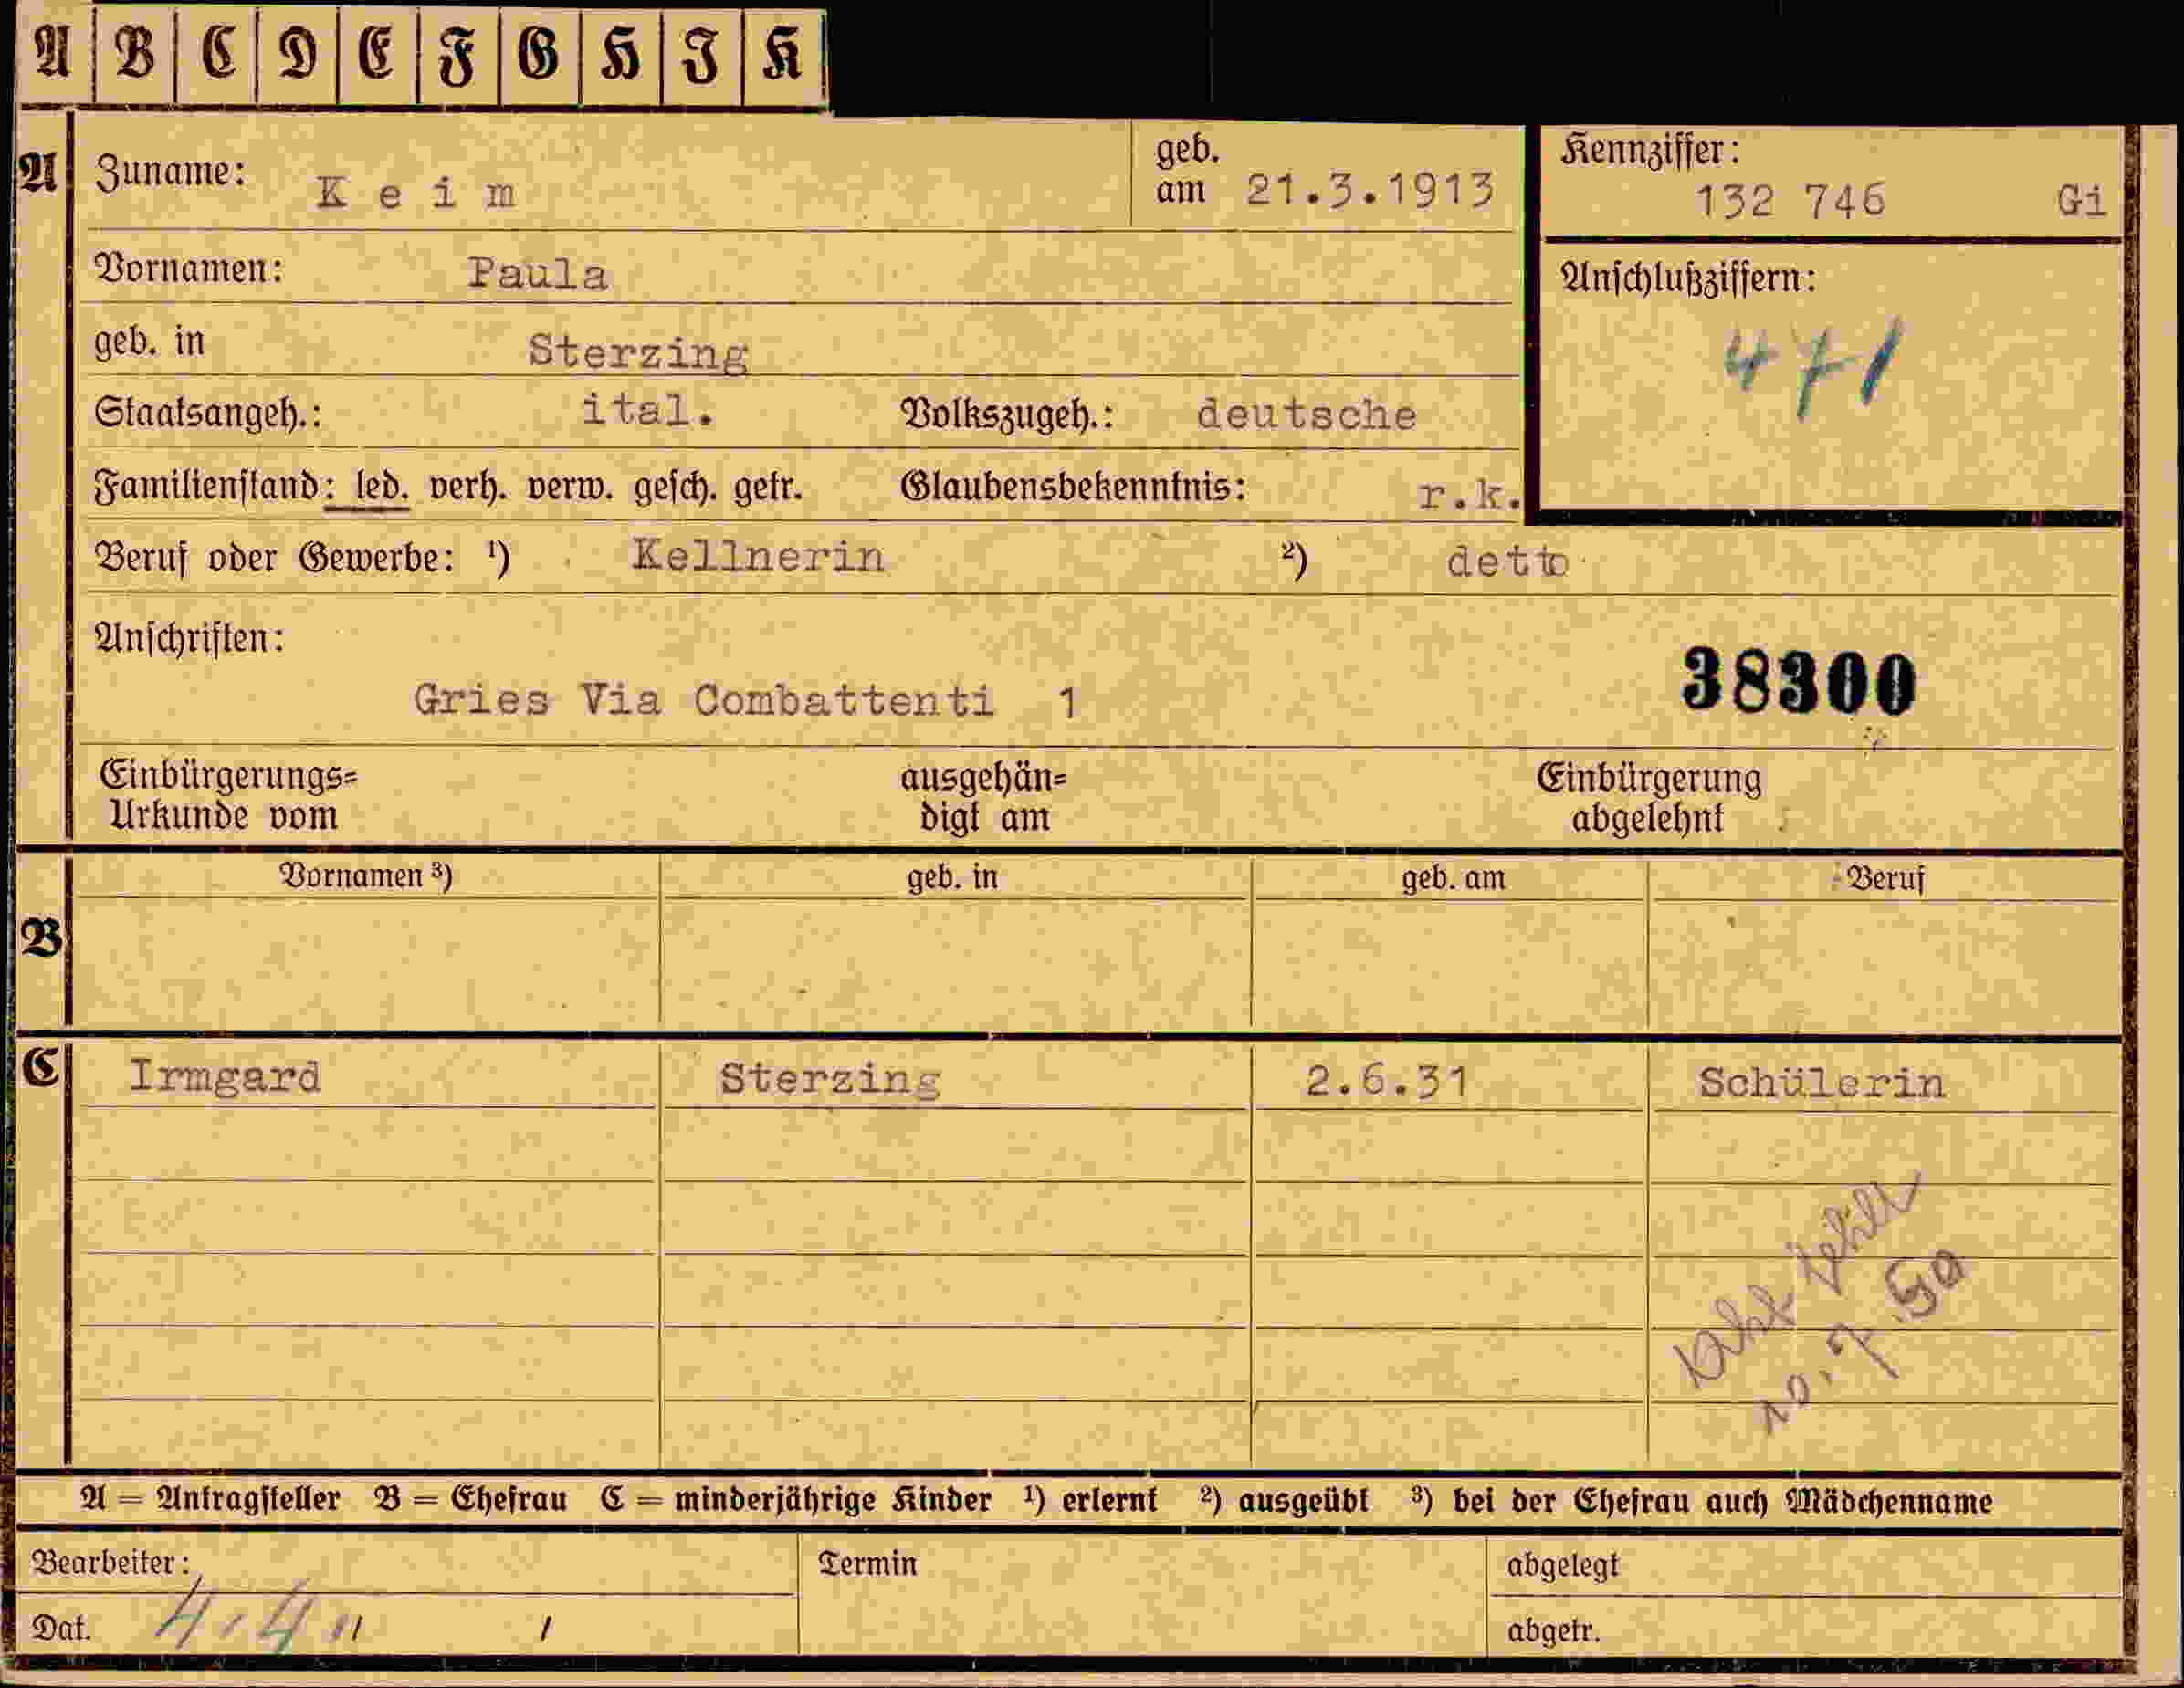 A B C D E F G H I K
A Zuname: Keim geb. am 21.3.1913 Kennziffer: 132 746 Gi
Vornamen: Paula Anschlußziffern: 471
geb. in Sterzing
Staatsangeh.: ital. Volkszugeh.: deutsche
Familienstand: led. verh. verw. gesch. getr. Glaubensbekenntnis: r.k.
Beruf oder Gewerbe: ¹) Kellnerin ²) detto
Anschriften:
Gries Via Combattenti 1 38300
Einbürgerungs= ausgehän= Einbürgerung
Urkunde vom digt am abgelehnt
Vornamen ³) geb. in geb. am Beruf
B
C Irmgard Sterzing 2.6.31 Schülerin
fehlt
A = Antragsteller B = Ehefrau C = minderjährige Kinder ¹) erlernt ²) ausgeübt ³) bei der Ehefrau auch Mädchenname
Bearbeiter: Termin abgelegt
Dat. abgetr.